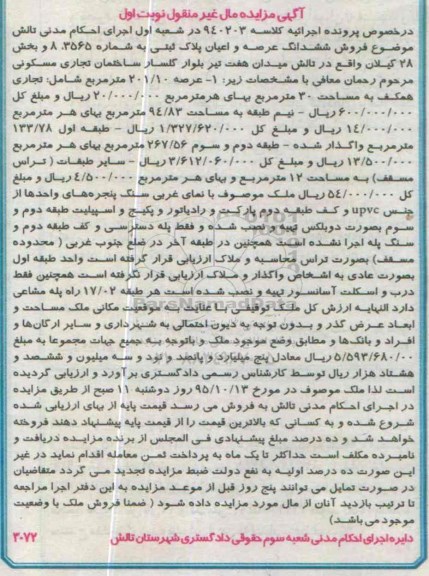 آگهی مزایده مال غیر منقول نوبت اول
درخصوص پرونده اجرائیه کلاسه ۹۴۰۲۰۳ در شعبه اول اجرای احکام مدنی تالش
موضوع فروش ششدانگ عرصه و اعیان پلاک ثبتی به شماره ۸.۳۵۶۵ و بخش
۲۸ گیلان واقع در تالش میدان هفت تیر بلوار گلسار ساختمان تجاری مسکونی
مرحوم رحمان معافی با مشخصات زیر: ۱- عرصه ۲۰۱/۱۰ مترمربع شامل: تجاری
همکف به مساحت ۳۰ مترمربع بهای هرمترمربع ۲۰/۰۰۰/۰۰۰ ریال و مبلغ کل
۶۰۰/۰۰۰/۰۰۰ ریال - نیم طبقه به مساحت ۹۴/۸۳ مترمربع بهای هر مترمربع
۱۴/۰۰۰/۰۰۰ و مبلغ کل ۱/۳۲۷/۶۲۰/۰۰۰ ریال - طبقه اول ۱۳۳/۷۸
مترمربع واگذار شده - طبقه دوم و سوم ۲۶۷/۵۶ مترمربع بهای هر مترمربع
۱۳/۵۰۰/۰۰۰ ریال و مبلغ کل ۳/۶۱۲/۰۶۰/۰۰۰ ریال - سایر طبقات ( تراس
مسقف) به مساحت ۱۲ مترمربع و بهای هر مترمربع ۴/۵۰۰/۰۰۰ ریال و مبلغ
کل ۵۴/۰۰۰/۰۰۰ ریال ملک موصوف با نمای غربی سنگ پنجره های واحدها از
جنس upvc و کف طبقه دوم پارکت و رادیاتور و پکیج و اسپیلیت طبقه دوم و
سوم بصورت دوبلکس تهیه و نصب شده و فقط پله دسترسی و کف طبقه دوم و
سنگ پله اجرا نشده است همچنین در طبقه آخر در ضلع جنوب غربی ( محدوده
مسقف) بصورت تراس محاسبه و ملاک ارزیابی قرار گرفته است واحد طبقه اول
بصورت عادی به اشخاص واگذار و ملاک ارزیابی قرار نگرفته است همچنین فقط
درب و اسکلت آسانسور تهیه و نصب شده است هر طبقه ۱۷/۰۲ راه پله مشاعی
دارد النهایه ارزش کل ملک توقیفی با عنایت به موقعیت مکانی ملک مساحت و
ابعاد عرض گذر و بدون توجه به دیون احتمالی به شهرداری و سایر ارگان ها و
افراد و بانک ها و مطابق وضع موجود ملک و باتوجه به جمیع جهات مجموعا به مبلغ
۵/۵۹۳/۶۸۰/۰۰ ریال معادل پنج میلیارد و پانصد و نود و سه میلیون و ششصد و
هشتاد هزار ریال توسط کارشناس رسمی دادگستری برآورد و ارزیابی گردیده
است لذا ملک موصوف در مورخ ۹۵/۱۰/۱۳ روز دوشنبه ۱۱ صبح از طریق مزایده
در اجرای احکام مدنی تالش به فروش می رسد قیمت پایه از بهای ارزیابی شده
شروع شده و به کسانی که بالاترین قیمت را از قیمت پایه پیشنهاد دهند فروخته
خواهد شد و ده درصد مبلغ پیشنهادی فی المجلس از برنده مزایده دریافت و
نامبرده مکلف است حداکثر تا یک ماه به پرداخت ثمن معامله اقدام نماید در غیر
این صورت ده درصد اولیه به نفع دولت ضبط مزایده تجدید می گردد متقاضیان
در صورت تمایل می توانند پنج روز قبل از موعد مزایده به این دفتر اجرا مراجعه
تا ترتیب بازدید آنان از مال مورد مزایده داده شود ( ضمنا فروش ملک با وضعیت
موجود می باشد)
دایره اجرای احکام مدنی شعبه سوم حقوقی دادگستری شهرستان تالش ۳۰۷۲